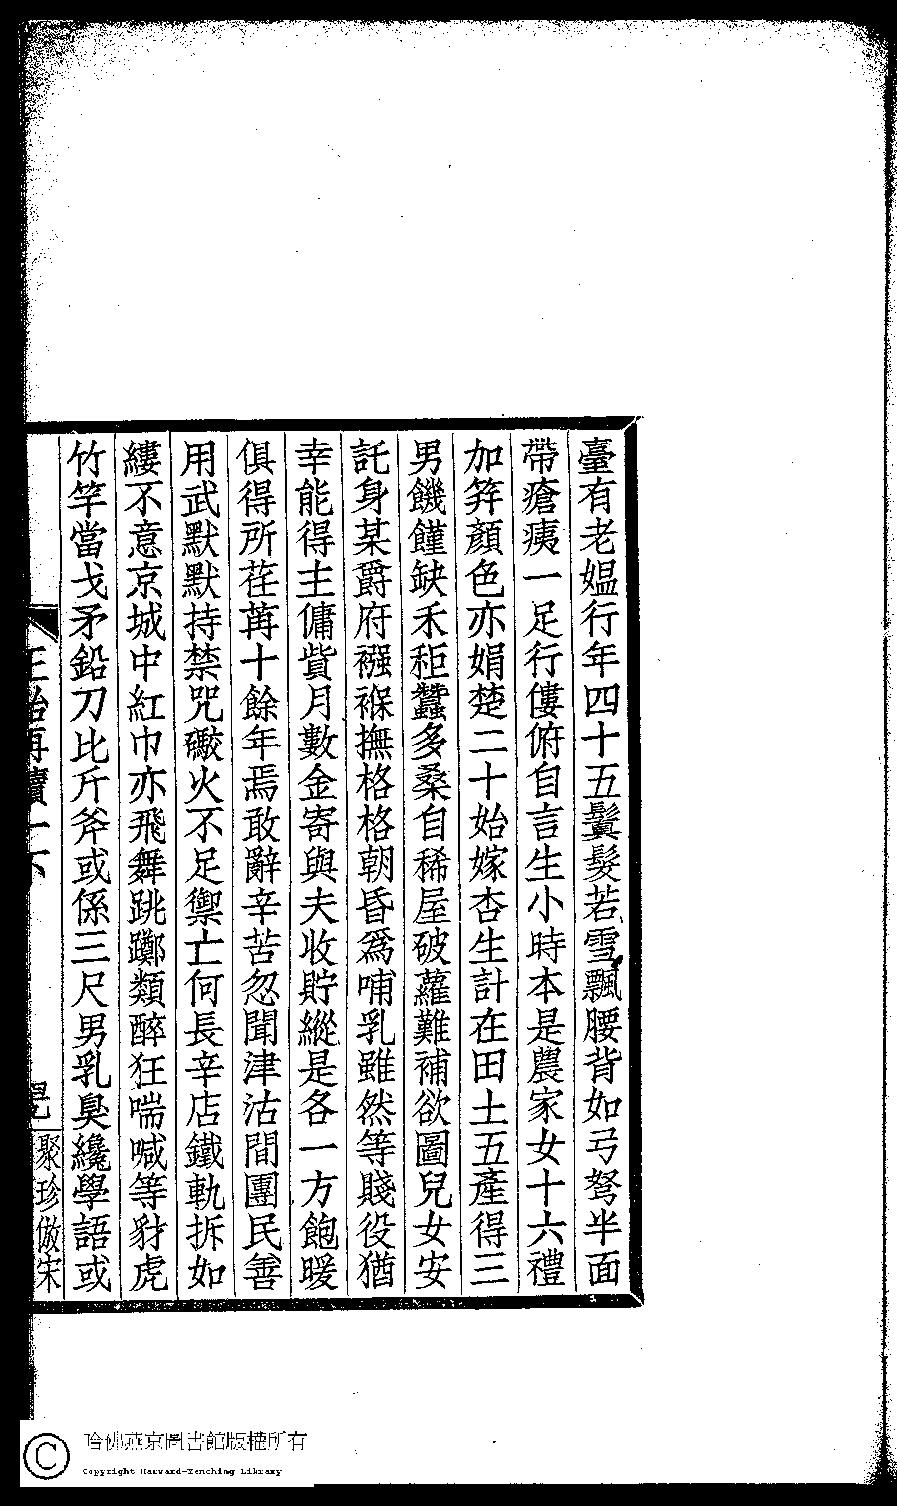 臺有老媼行年四十五鬢髮若雪飄腰背如弓弩半面
帶瘡痍一足行僂俯自言生小時本是農家女十六禮
加笄顏色亦娟楚二十始嫁杏生計在田土五產得三
男饑饉缺禾秬蠶多桑自稀屋破蘿難補欲圖兒女安
託身某爵府襁褓撫格格朝昏為哺乳雖然等賤役猶
幸能得主傭貲月數金寄與夫收貯縱是各一方飽暖
俱得所荏苒十餘年焉敢辭辛苦忽聞津沽間團民善
用武默默持禁咒礮火不足禦亡何長辛店鐵軌拆如
縷不意京城中紅巾亦飛舞跳躑類醉狂喘喊等豺虎
竹竿當戈矛鉛刀比斤斧或係三尺男乳臭纔學語或
聚珍倣宋
哈佛燕京圖書館版權所有
Copyright Harvard-Yenching Library